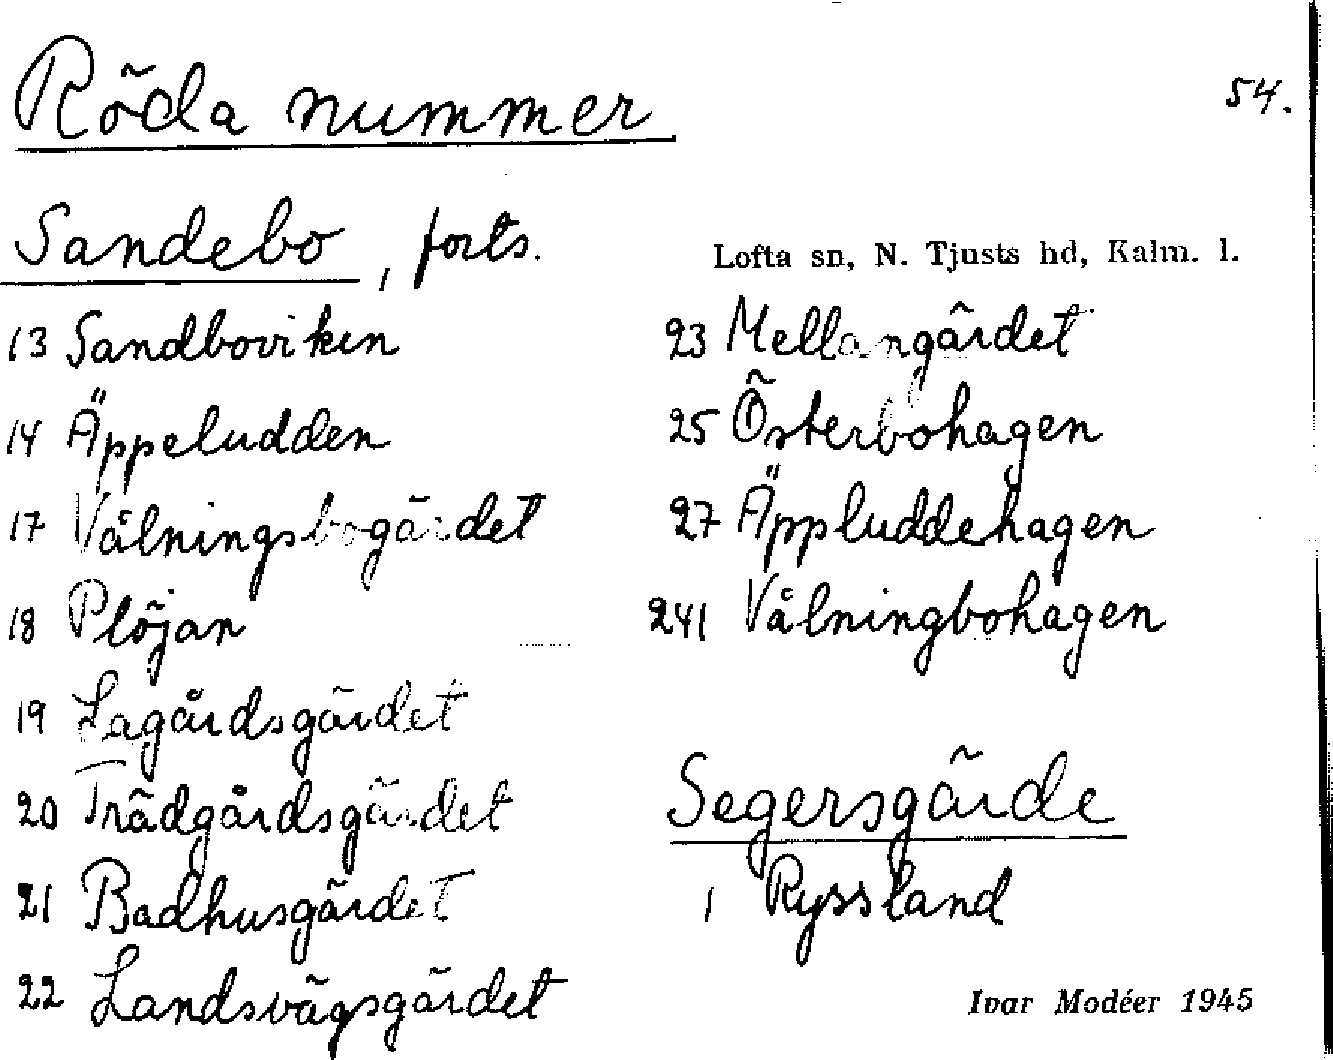 Röda nummer
54.
Sandebo, forts.
Lofta sn, N. Tjusts hd, Kalm. l.
13 Sandboviken
14 Äppeludden
17 Vålningsbogärdet
18 Plöjan
19 Lagårdsgärdet
20 Trädgårdsgärdet
21 Badhusgärdet
22 Landsvägsgärdet
23 Mellangärdet
25 Österbohagen
27 Äppluddehagen
241 Vålningbohagen
Segersgärde
1 Ryssland
Ivar Modéer 1945